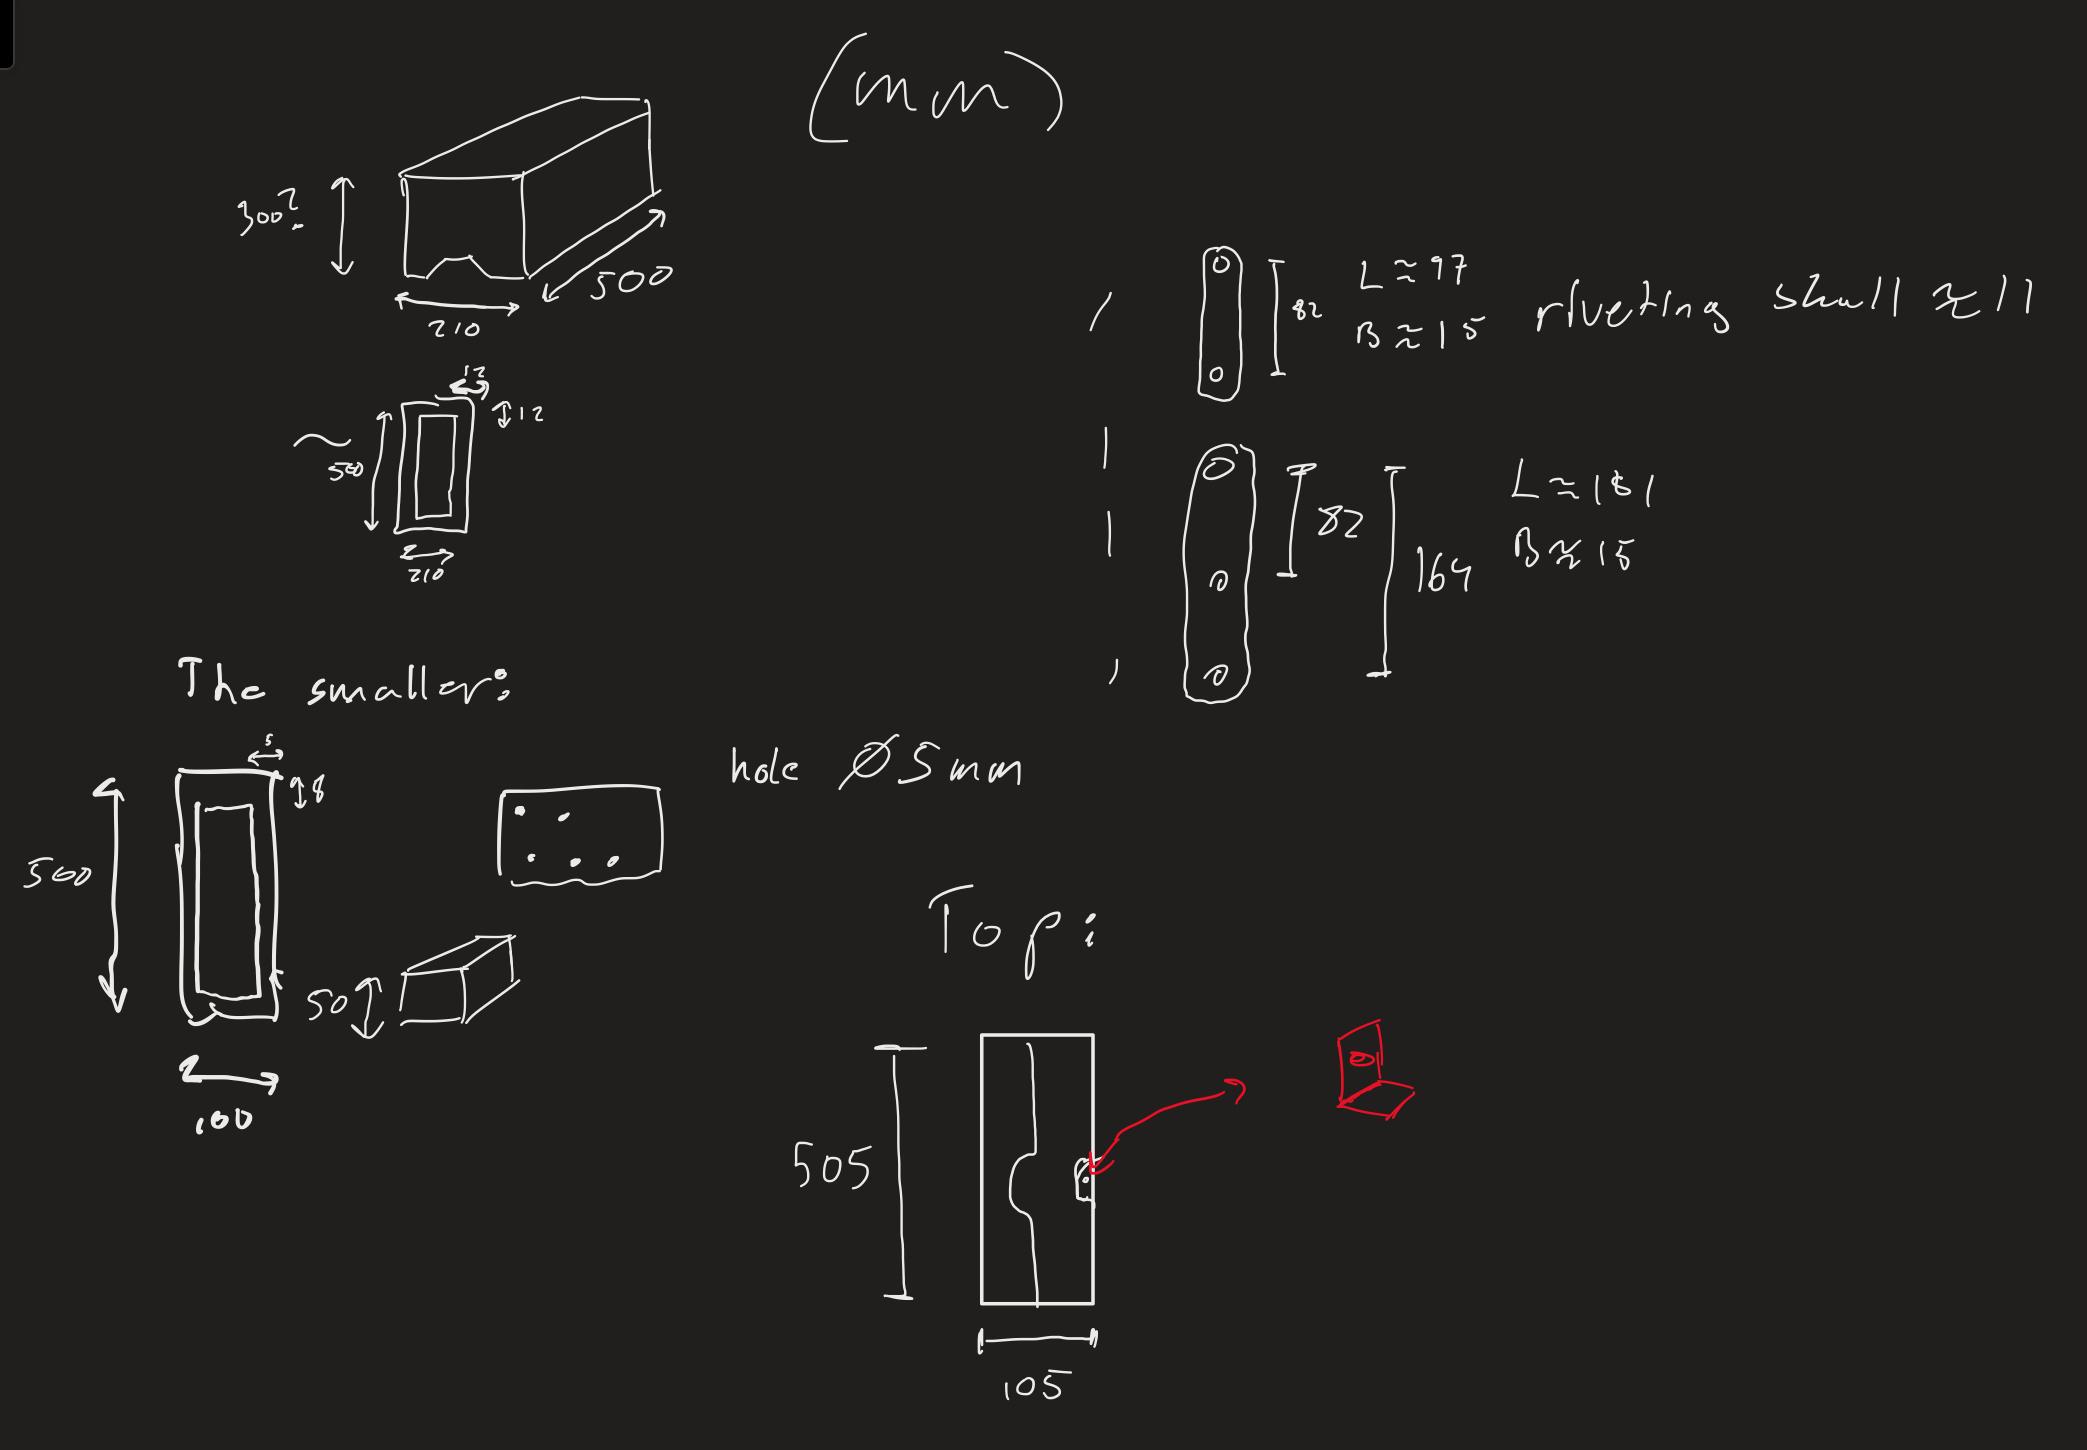 (mm)
300?
500
210
L ≈ 97
82
B ≈ 15
riveting shall ≈ 11
12
12
500
210
L ≈ 181
82
B ≈ 15
164
The smaller:
hole Ø5mm
5
8
500
50
100
Top:
505
105